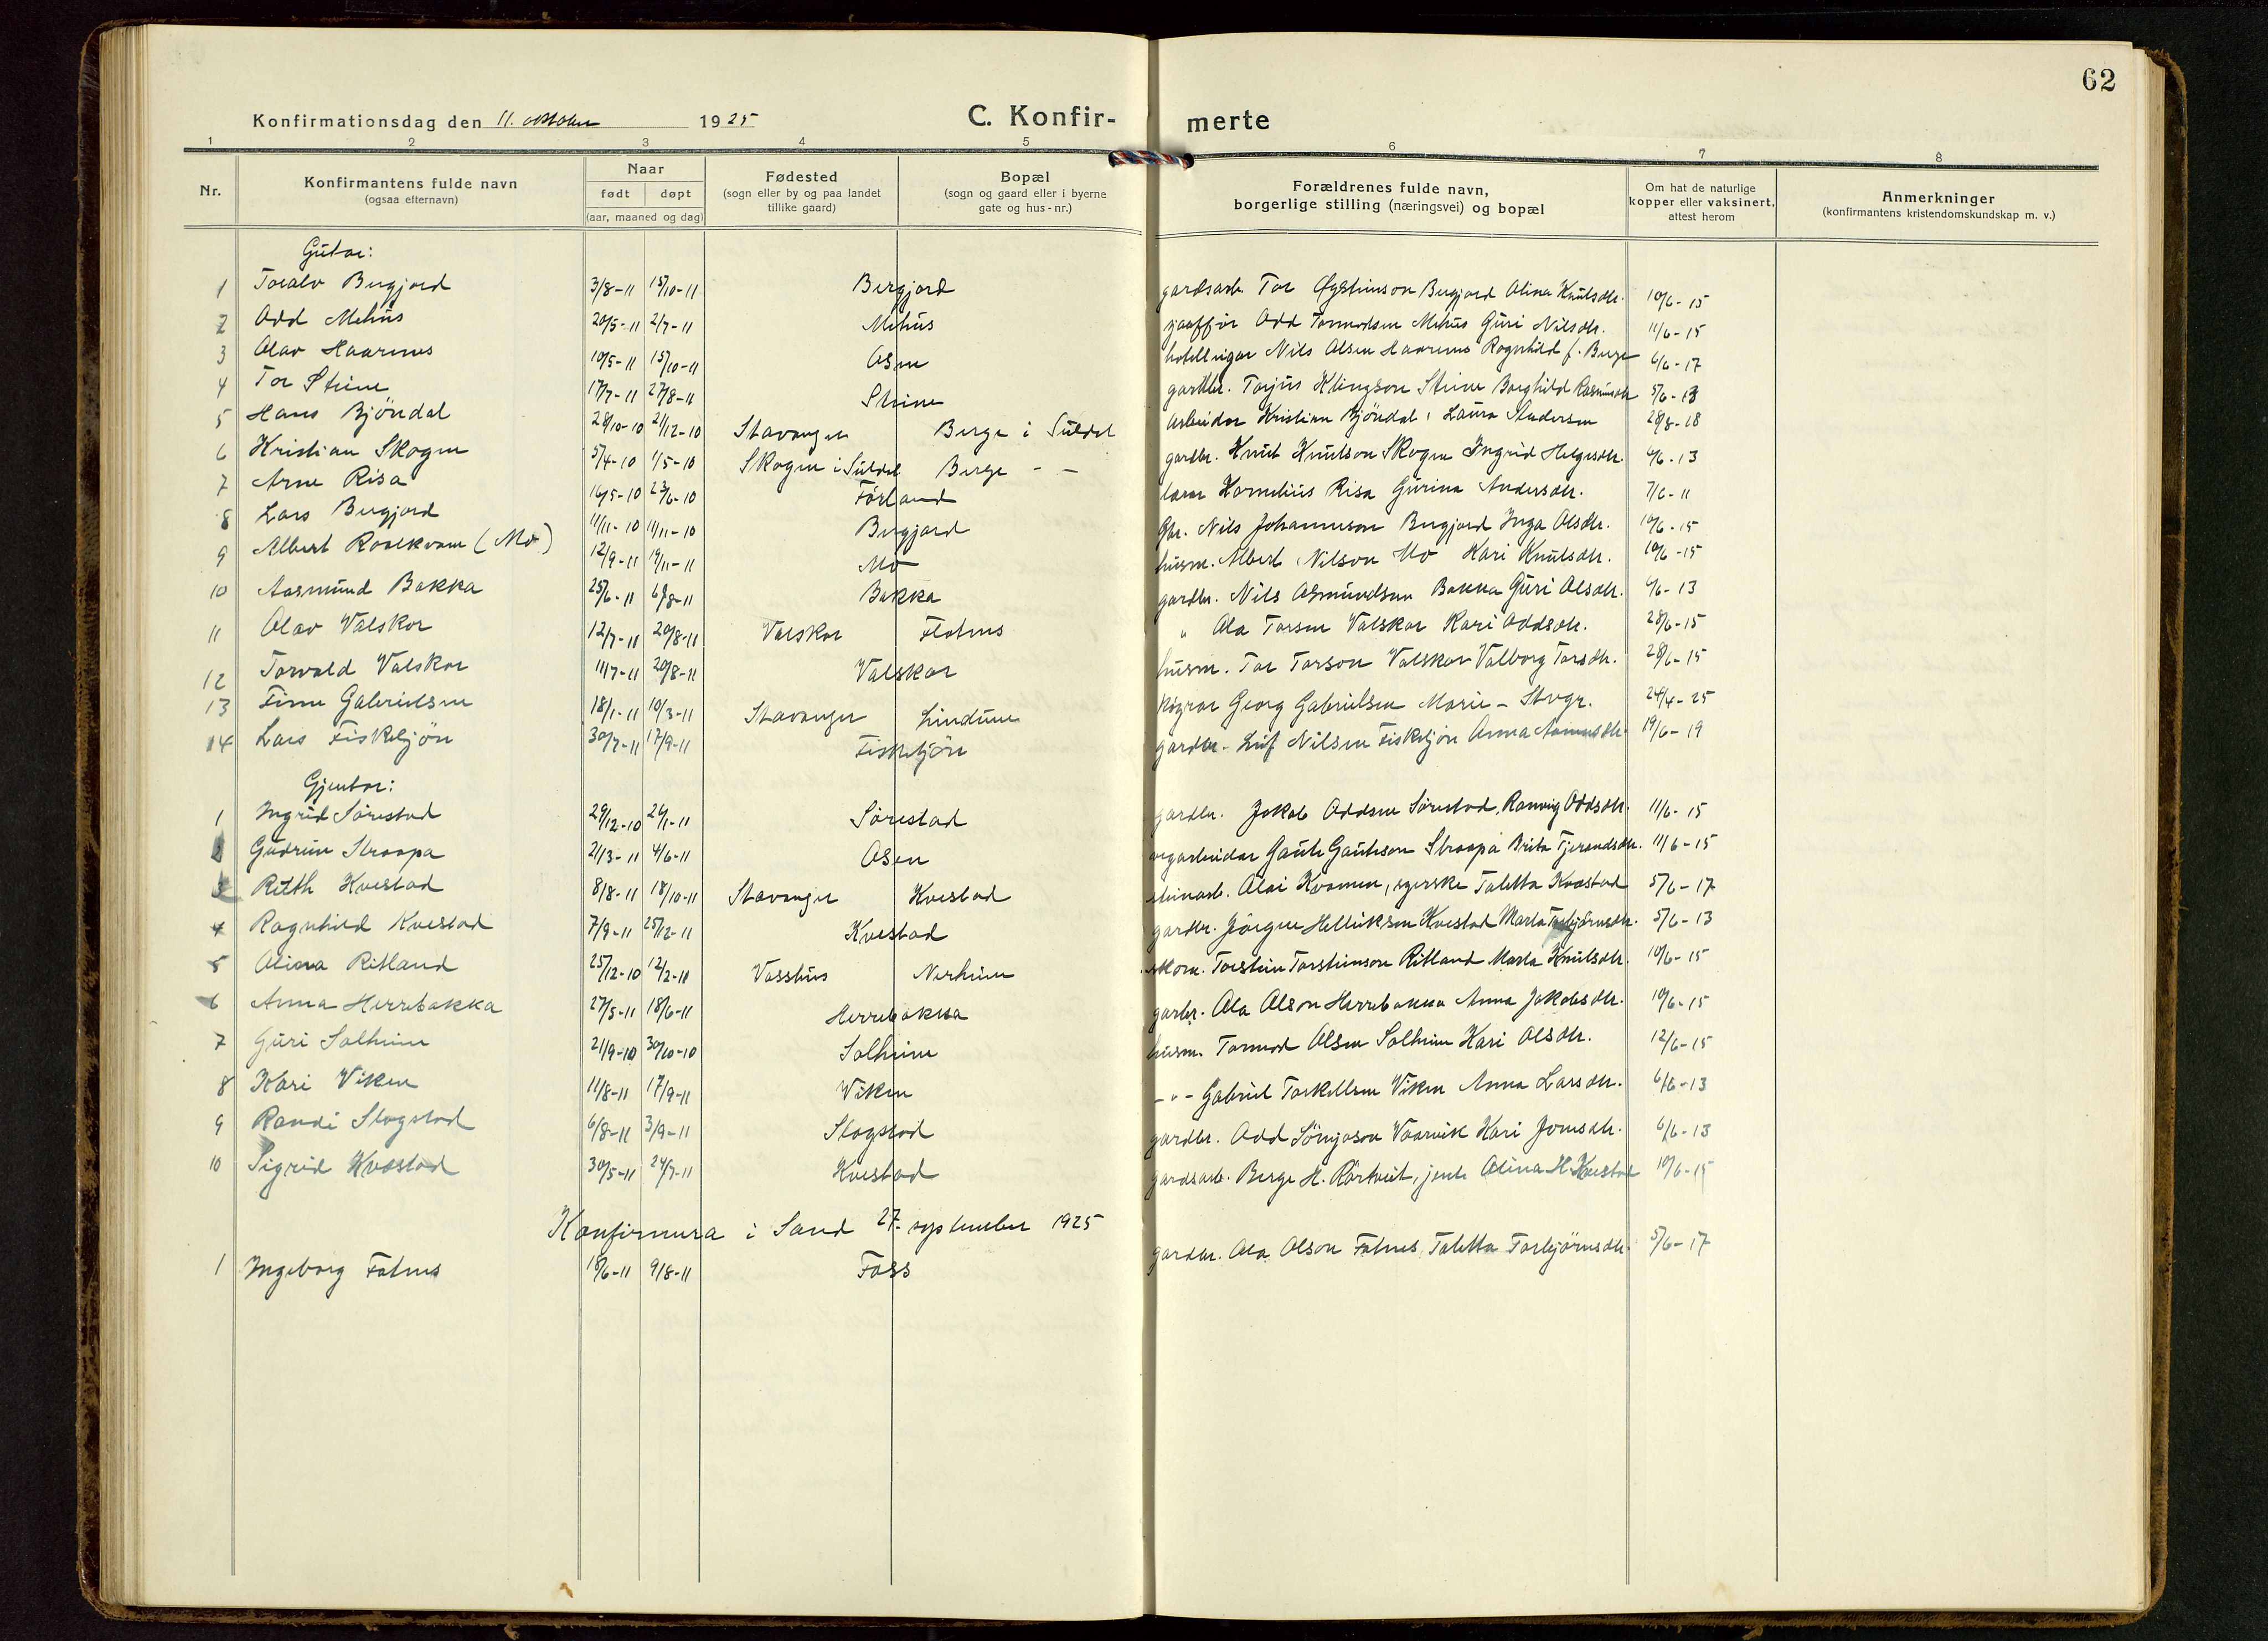 62
Konfirmationsdag den 11. oktober 1925
C. Konfir- merte
1 2 3 4 5 6 7 8
Nr.
Konfirmantens fulde navn
(ogsaa efternavn)
Naar
født døpt
(aar, maaned og dag)
Fødested
(sogn eller by og paa landet
tillike gaard)
Bopæl
(sogn og gaard eller i byerne
gate og hus-nr.)
Forældrenes fulde navn,
borgerlige stilling (næringsvei) og bopæl
Om hat de naturlige
kopper eller vaksinert,
attest herom
Anmerkninger
(konfirmantens kristendomskundskap m. v.)
Gutar:
1 Toralv Bergjord 3/8-11 15/10-11 Bergjord gardsarb. Tor Øysteinson Bergjord Alina Knutsdtr. 10/6-15
2 Odd Mehus 20/5-11 2/7-11 Mehus Odd Tormodsen Mehus Guri Nilsdtr. 11/6-15
3 Olav Haarenes 10/5-11 15/10-11 Åsen Nils Olsen Haarenes Ragnhild f. Berge 6/6-17
4 Tor Steine 17/7-11 27/8-11 Steine gardbr. Torjus Klingson Steine Borghild Rasmusdtr 5/6-13
5 Hans Bjöndal 28/10-10 21/12-10 Stavanger Berge i Suldal arbeidar Kristian Bjöndal, Laura 28/8-18
6 Kristian Skogen 5/4-10 1/5-10 Skogen i Suldal Berge - - gardbr. Knut Knutson Skogen Ingrid Helgesdtr. 4/6-13
7 Arne Risa 16/5-10 23/6-10 Førland lærar Kornelius Risa Gurina Andersdtr. 7/6-11
8 Lars Bergjord 11/11-10 11/11-10 Bergjord Gbr. Nils Johannesson Bergjord Inga Olsdtr. 10/6-15
9 Albert Roalkvam (Mo) 12/9-11 19/11-11 Mo husm. Albert Nilson Mo Kari Knutsdtr. 10/6-15
10 Aasmund Bakka 25/6-11 6/8-11 Bakka gardbr. Nils Osmundsen Bakka Guri Olsdtr. 4/6-13
11 Olav Valskor 12/7-11 20/8-11 Valskor Flotnes " Ola Torsen Valskar Kari Oddsdtr. 28/6-15
12 Torvald Valskor 11/7-11 20/8-11 Valskor husm. Tor Torson Valskar Valborg Torsdtr. 28/6-15
13 Finn Gabrielsen 18/1-11 10/3-11 Stavanger Lindum Georg Gabrielsen Marie - Stvgr. 24/4-25
14 Lars Fisketjön 30/7-11 17/9-11 Fisketjön gardbr. Leif Nilsen Fisketjön Anna 19/6-19
Gjentor:
1 Ingrid Sørestad 29/12-10 26/1-11 Sørestad gardbr. Jakob Oddsen Sørestad, Ranveig Oddsdtr. 11/6-15
Gudrun Straapa 21/3-11 4/6-11 Åsen vegarbeidar Gaute Gauteson Straapa Brita Tjerandsdtr. 11/6-15
3 Ruth Kvestad 8/8-11 18/10-11 Stavanger Kvestad steinarb. Olai Kvamen, syerske Taletta Kvæstad 5/6-17
4 Ragnhild Kvestad 7/9-11 25/12-11 Kvestad gardbr. Jörgen Helliksen Kvestad Marta Torbjörnsdtr. 5/6-13
5 Olina Ritland 25/12-10 12/2-11 Vasshus Nerheim skom. Torstein Torsteinson Ritland Marta Knutsdtr. 10/6-15
6 Anna Herrebakka 27/5-11 18/6-11 Herrebakka garbr. Ola Olson Herrebakka Anna Jakobsdtr. 10/6-15
7 Guri Solheim 21/9-10 30/10-10 Solheim husm. Tormod Olsen Solheim Kari Olsdtr. 12/6-15
8 Kari Viken 11/8-11 17/9-11 Viken -"- Gabriel Torkellsen Viken Anna Larsdtr. 6/6-13
9 Randi Slogstad 6/8-11 3/9-11 Slogstad gardbr. Odd Vaarvik Kari Jonsdtr. 6/6-13
10 Sigrid Kvæstad 30/5-11 24/7-11 Kvestad gardsarb. Berge H. Rörtveit, jente Olina H. Kvestad 10/6-15
Konfirmera i Sand 27. september 1925
1 Ingeborg Fatnes 18/6-11 9/8-11 Foss gardbr. Ola Olson Fatnes Taletta Torbjörnsdtr. 5/6-17